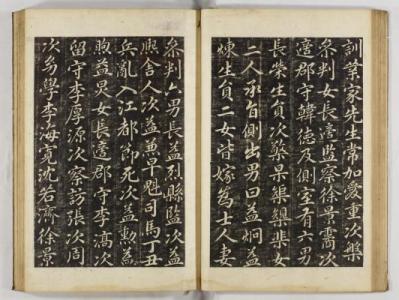 訓業家先生常加愛重次槃
叅判女長適監察徐景霌次
適郡守韓德及側室有六男
長榮生負次檠杲棐女
二人承旨側出男曰益炯益
煉生負二女皆嫁為士人妻
叅判六男長益烈縣監次益
熙舍人次益兼早魁司馬丁丑
兵亂入江都節死次益勳益
煦益炅女長適郡守李滈次
留守李厚源次察訪張次周
次幼學李海寬沈若濟徐景